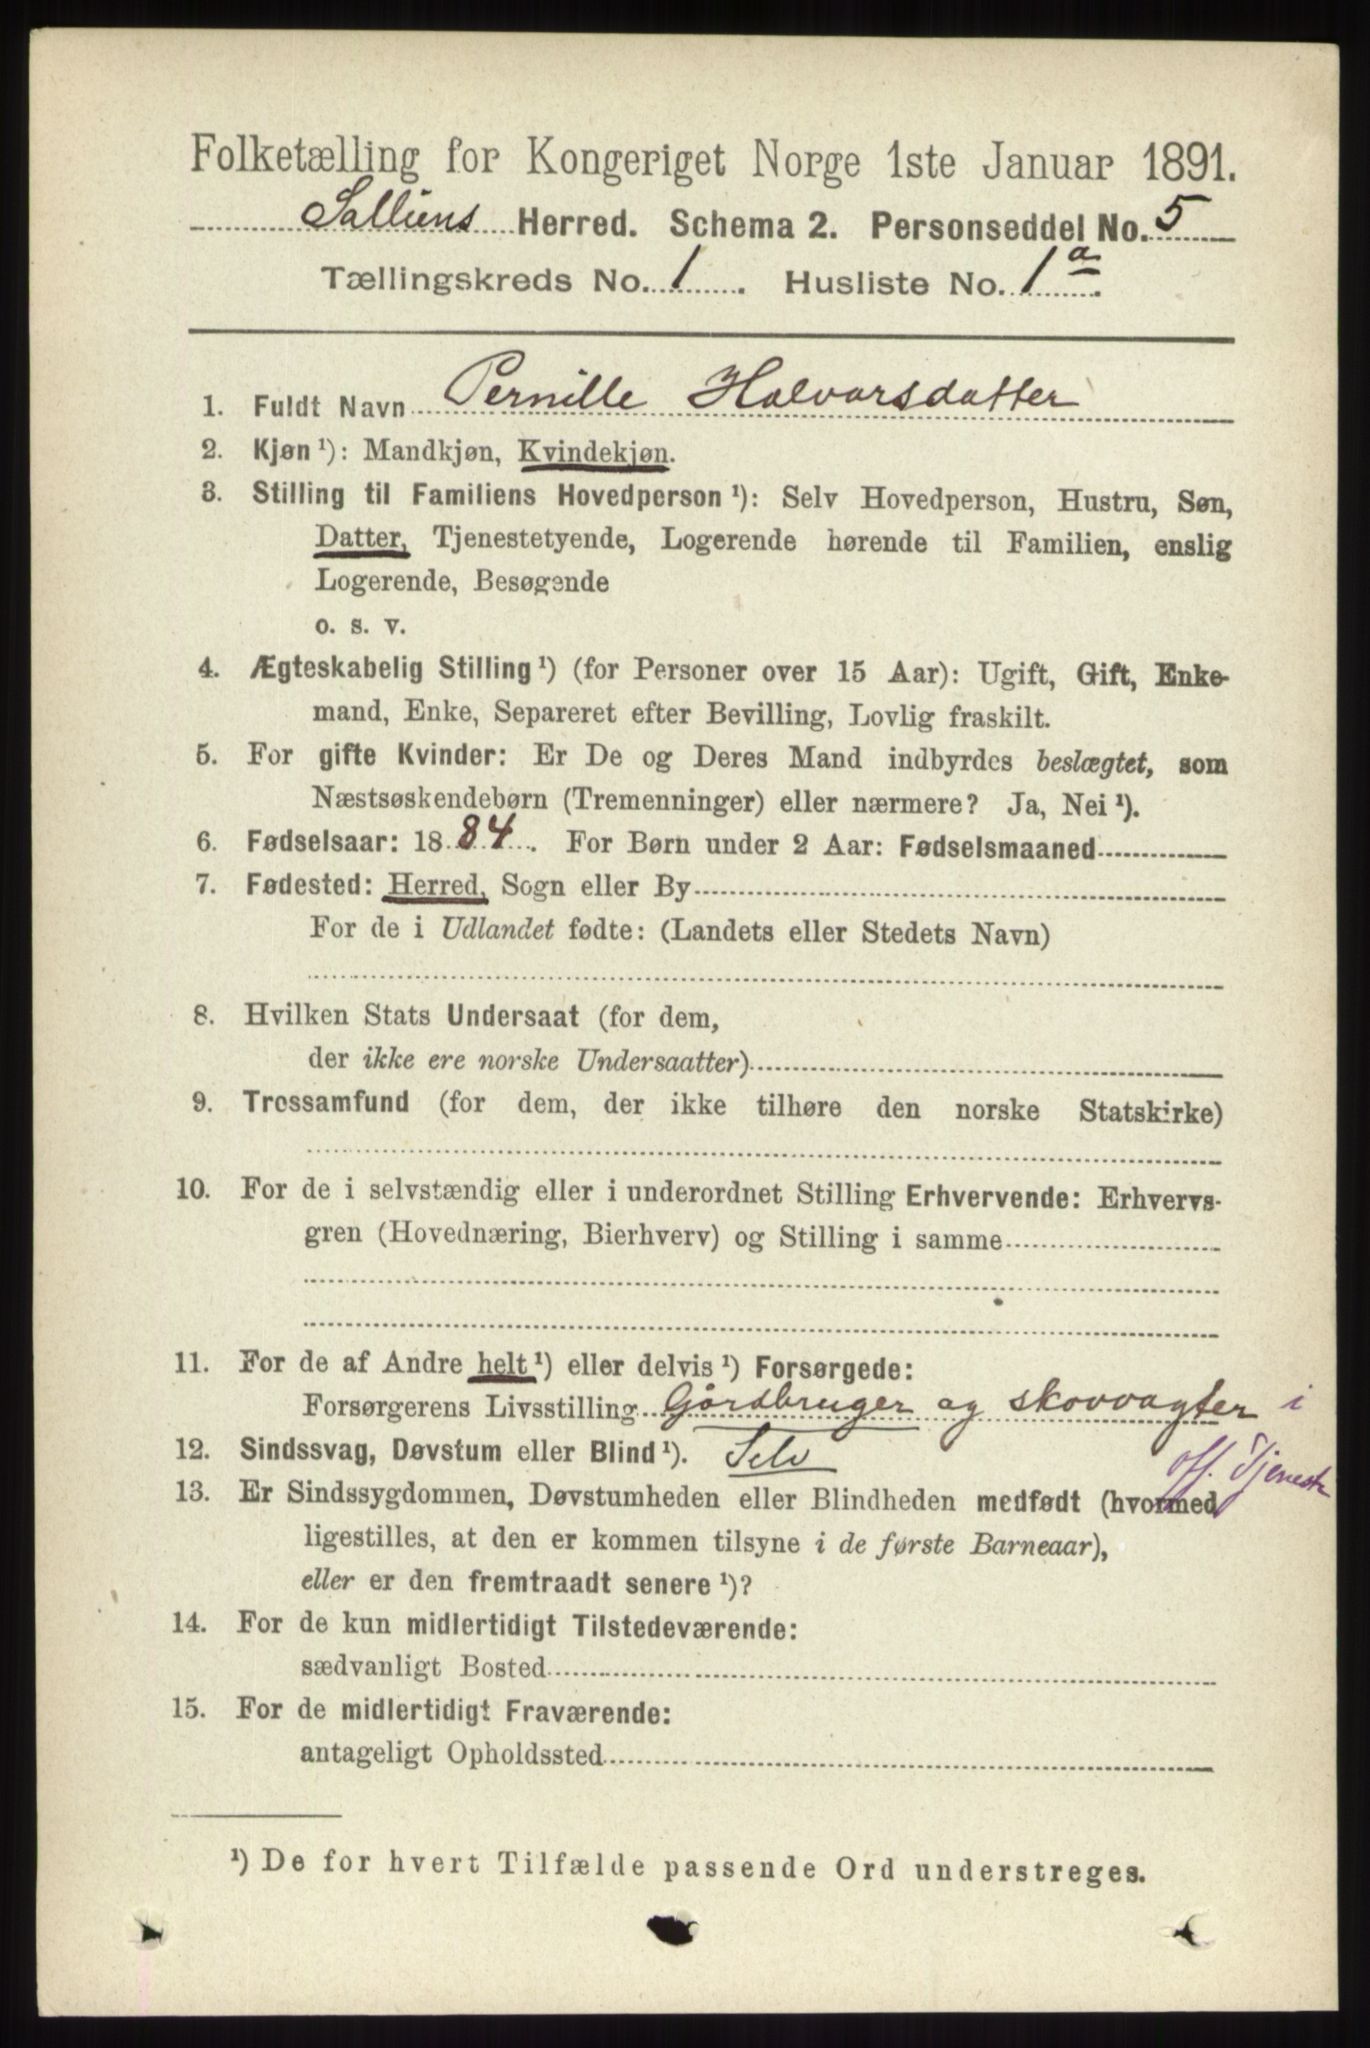 Folketælling for Kongeriget Norge 1ste Januar 1891.
Salliens Herred. Schema 2. Personseddel No. 5
Tællingskreds No. 1. Husliste No. 1a.
1. Fuldt Navn Pernille Halvarsdatter
2. Kjøn ¹): Mandkjøn, Kvindekjøn.
3. Stilling til Familiens Hovedperson ¹): Selv Hovedperson, Hustru, Søn,
Datter, Tjenestetyende, Logerende hørende til Familien, enslig
Logerende, Besøgende
o. s. v.
4. Ægteskabelig Stilling ¹) (for Personer over 15 Aar): Ugift, Gift, Enke-
mand, Enke, Separeret efter Bevilling, Lovlig fraskilt.
5. For gifte Kvinder: Er De og Deres Mand indbyrdes beslægtet, som
Næstsøskendebørn (Tremenninger) eller nærmere? Ja, Nei ¹).
6. Fødselsaar: 1884. For Børn under 2 Aar: Fødselsmaaned
7. Fødested: Herred, Sogn eller By
For de i Udlandet fødte: (Landets eller Stedets Navn)
8. Hvilken Stats Undersaat (for dem,
der ikke ere norske Undersaatter)
9. Trossamfund (for dem, der ikke tilhøre den norske Statskirke)
10. For de i selvstændig eller i underordnet Stilling Erhvervende: Erhvervs-
gren (Hovednæring, Bierhverv) og Stilling i samme
11. For de af Andre helt ¹) eller delvis ¹) Forsørgede:
Forsørgerens Livsstilling Gårdbruger og skovvagter i
off. Tjeneste
12. Sindssvag, Døvstum eller Blind ¹). Selv
13. Er Sindssygdommen, Døvstumheden eller Blindheden medfødt (hvormed
ligestilles, at den er kommen tilsyne i de første Barneaar),
eller er den fremtraadt senere ¹)?
14. For de kun midlertidigt Tilstedeværende:
sædvanligt Bosted
15. For de midlertidigt Fraværende:
antageligt Opholdssted
¹) De for hvert Tilfælde passende Ord understreges.